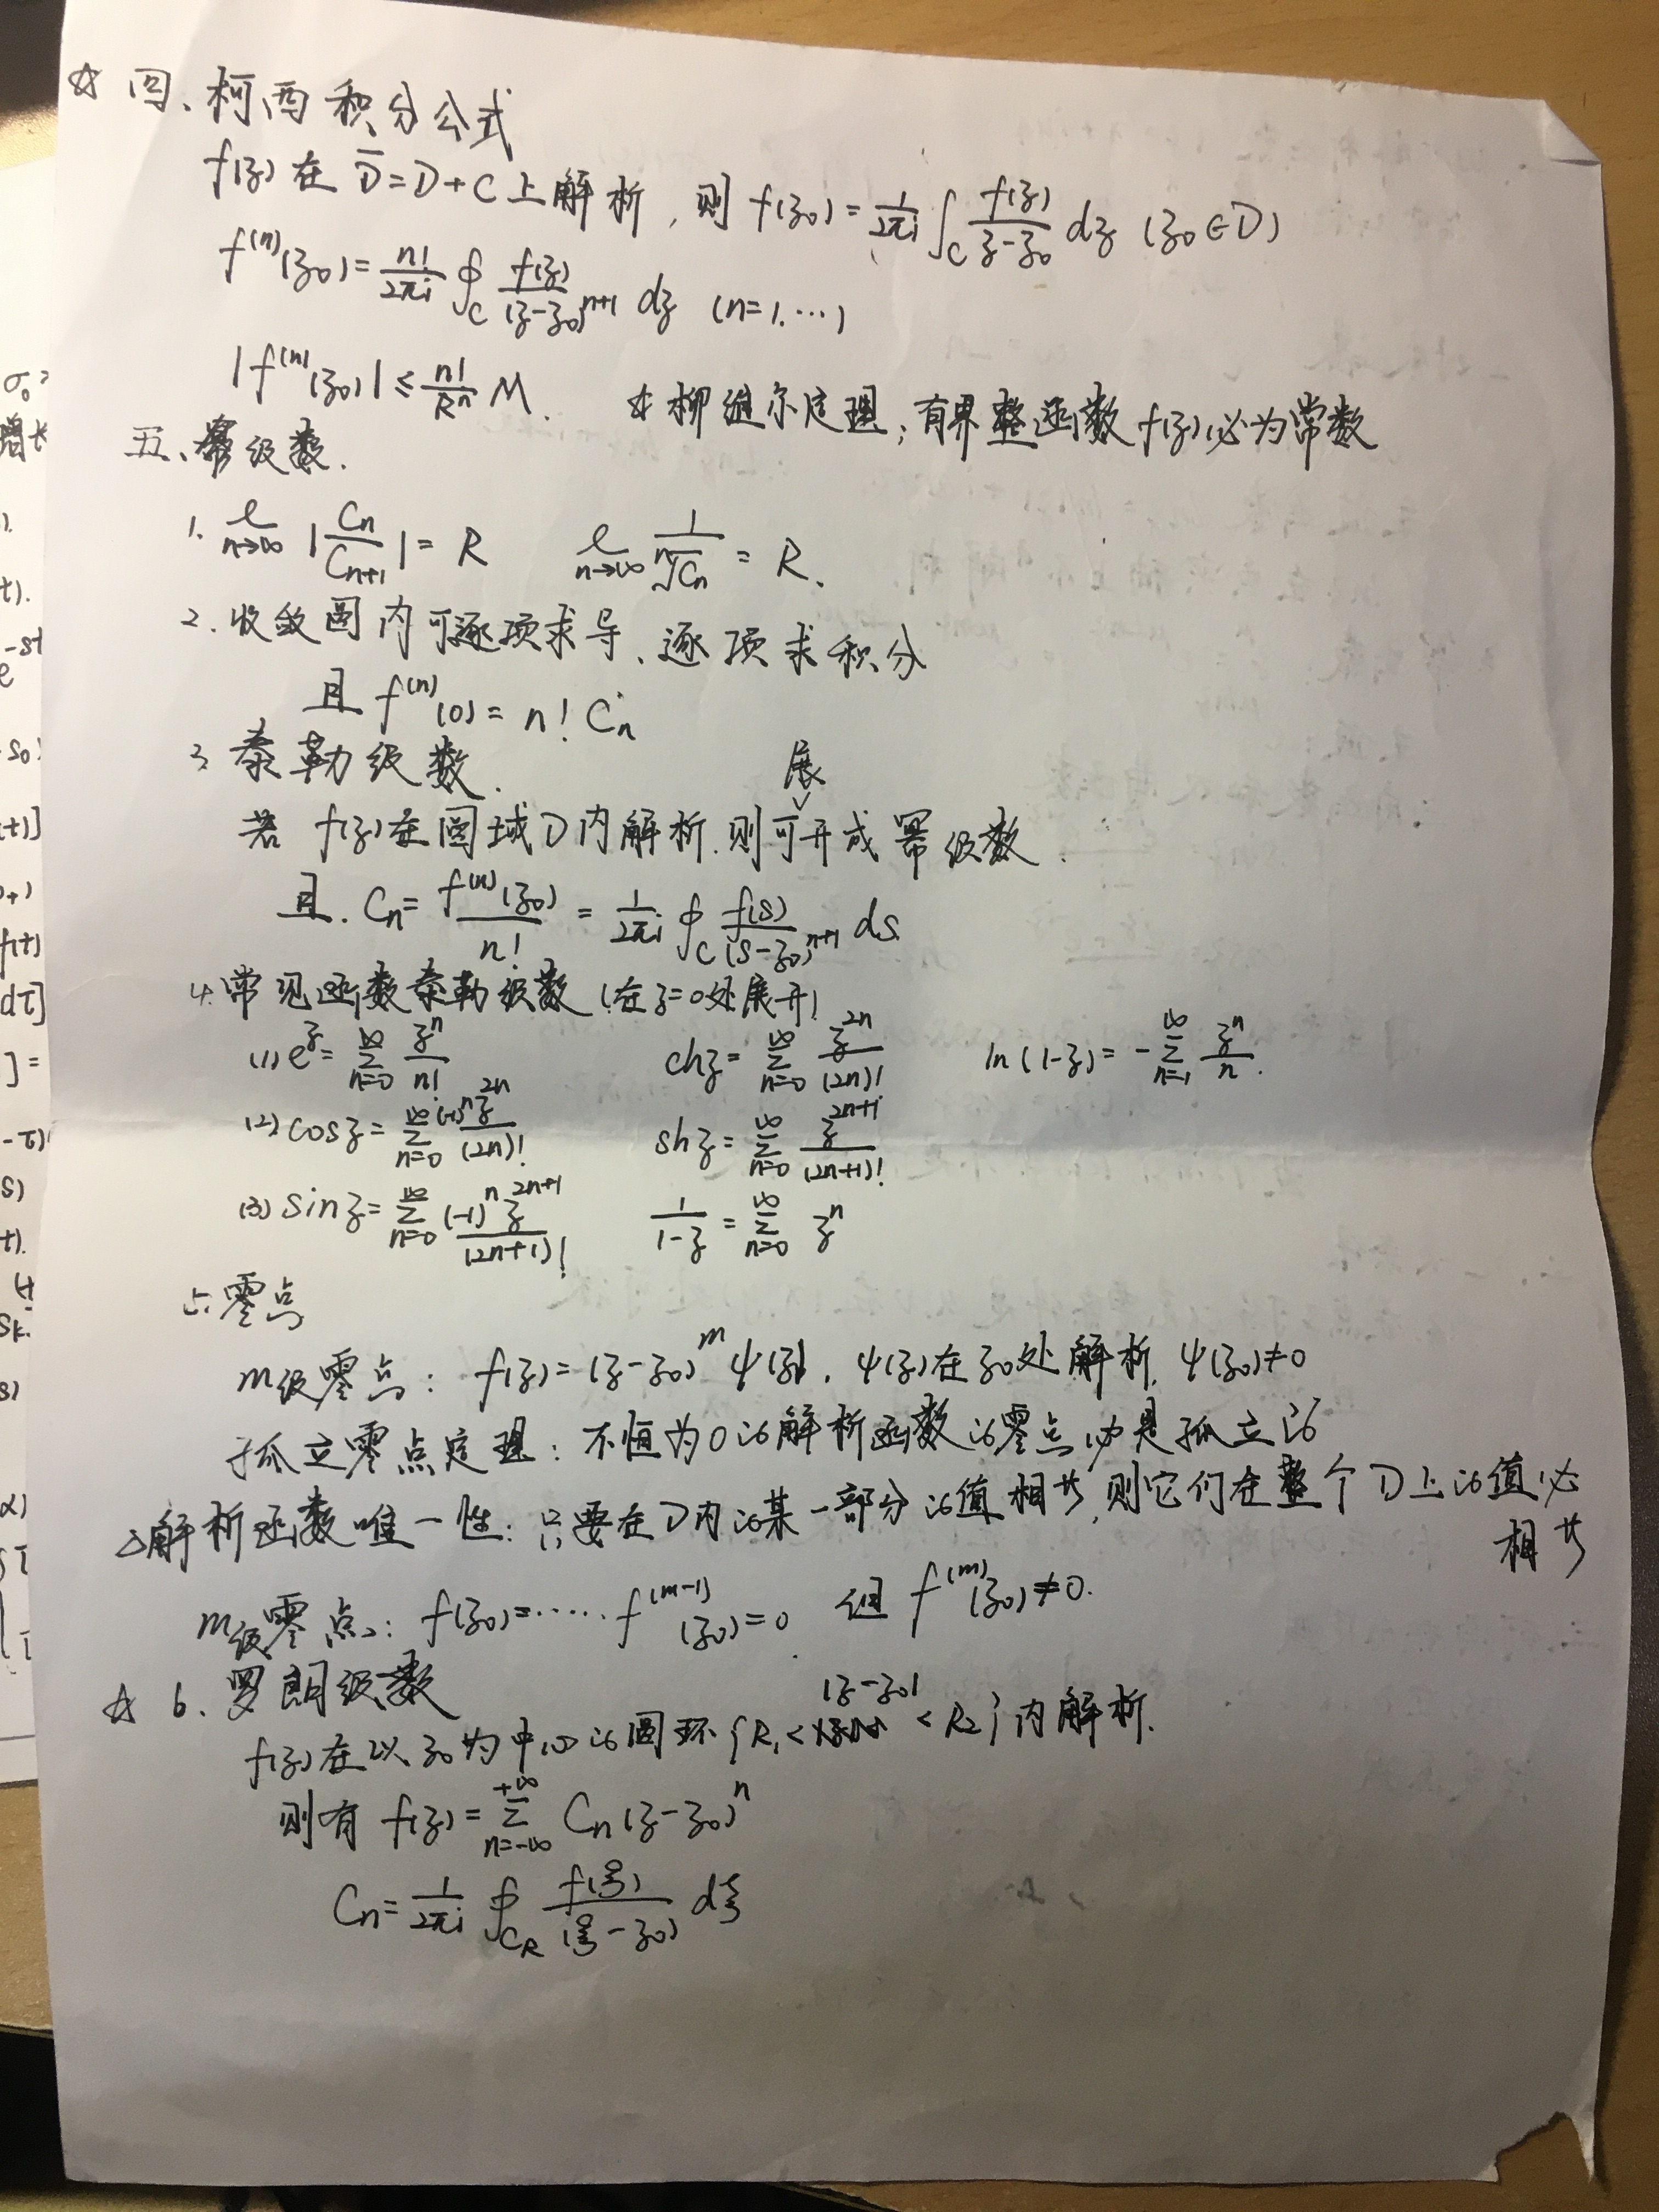 ☆ 四、柯西积分公式
f(z)在 D̅=D+C上解析,则 f(z₀)=\frac{1}{2πi}∫_C \frac{f(z)}{z-z₀} dz (z₀∈D)
f^{(n)}(z₀)=\frac{n!}{2πi}∮_C \frac{f(z)}{(z-z₀)^{n+1}} dz (n=1.…)
|f^{(n)}(z₀)|≤\frac{n!}{R^n} M. ☆柳维尔定理:有界整函数f(z)必为常数
五、幂级数.
1. ℓ_{n→∞} |\frac{C_n}{C_{n+1}}|= R ℓ_{n→∞} \frac{1}{\sqrt[n]{C_n}} = R.
2. 收敛圆内可逐项求导、逐项求积分
且 f^{(n)}(0)= n! C_n
3. 泰勒级数.
若 f(z)在圆域D内解析.则可展开成幂级数.
且. C_n=\frac{f^{(n)}(z₀)}{n!}=\frac{1}{2πi}∮_C \frac{f(s)}{(s-z₀)^{n+1}} ds
4. 常见函数泰勒级数(在z=0处展开)
(1) e^z=∑_{n=0}^{∞} \frac{z^n}{n!} chz=∑_{n=0}^{∞} \frac{z^{2n}}{(2n)!} ln(1-z)=-∑_{n=1}^{∞} \frac{z^n}{n}.
(2) cosz=∑_{n=0}^{∞} \frac{(-1)^n z^{2n}}{(2n)!} shz=∑_{n=0}^{∞} \frac{z^{2n+1}}{(2n+1)!}
(3) sinz=∑_{n=0}^{∞} \frac{(-1)^n z^{2n+1}}{(2n+1)!} \frac{1}{1-z}=∑_{n=0}^{∞} z^n
六.零点
m级零点: f(z)=(z-z₀)^m ψ(z). ψ(z)在z₀处解析. ψ(z₀)≠0
孤立零点定理:不恒为0的解析函数的零点必是孤立的
△解析函数唯一性:只要在D内的某一部分的值相等,则它们在整个D上的值必
相等
m级零点: f(z₀)=…… f^{(m-1)}(z₀)=0 但 f^{(m)}(z₀)≠0.
☆ 6. 罗朗级数
f(z)在以z₀为中心的圆环{R₁<|z-z₀|<R₂}内解析.
则有 f(z)=∑_{n=-∞}^{+∞} C_n(z-z₀)^n
C_n=\frac{1}{2πi}∮_{C_R} \frac{f(ξ)}{(ξ-z₀)} dξ